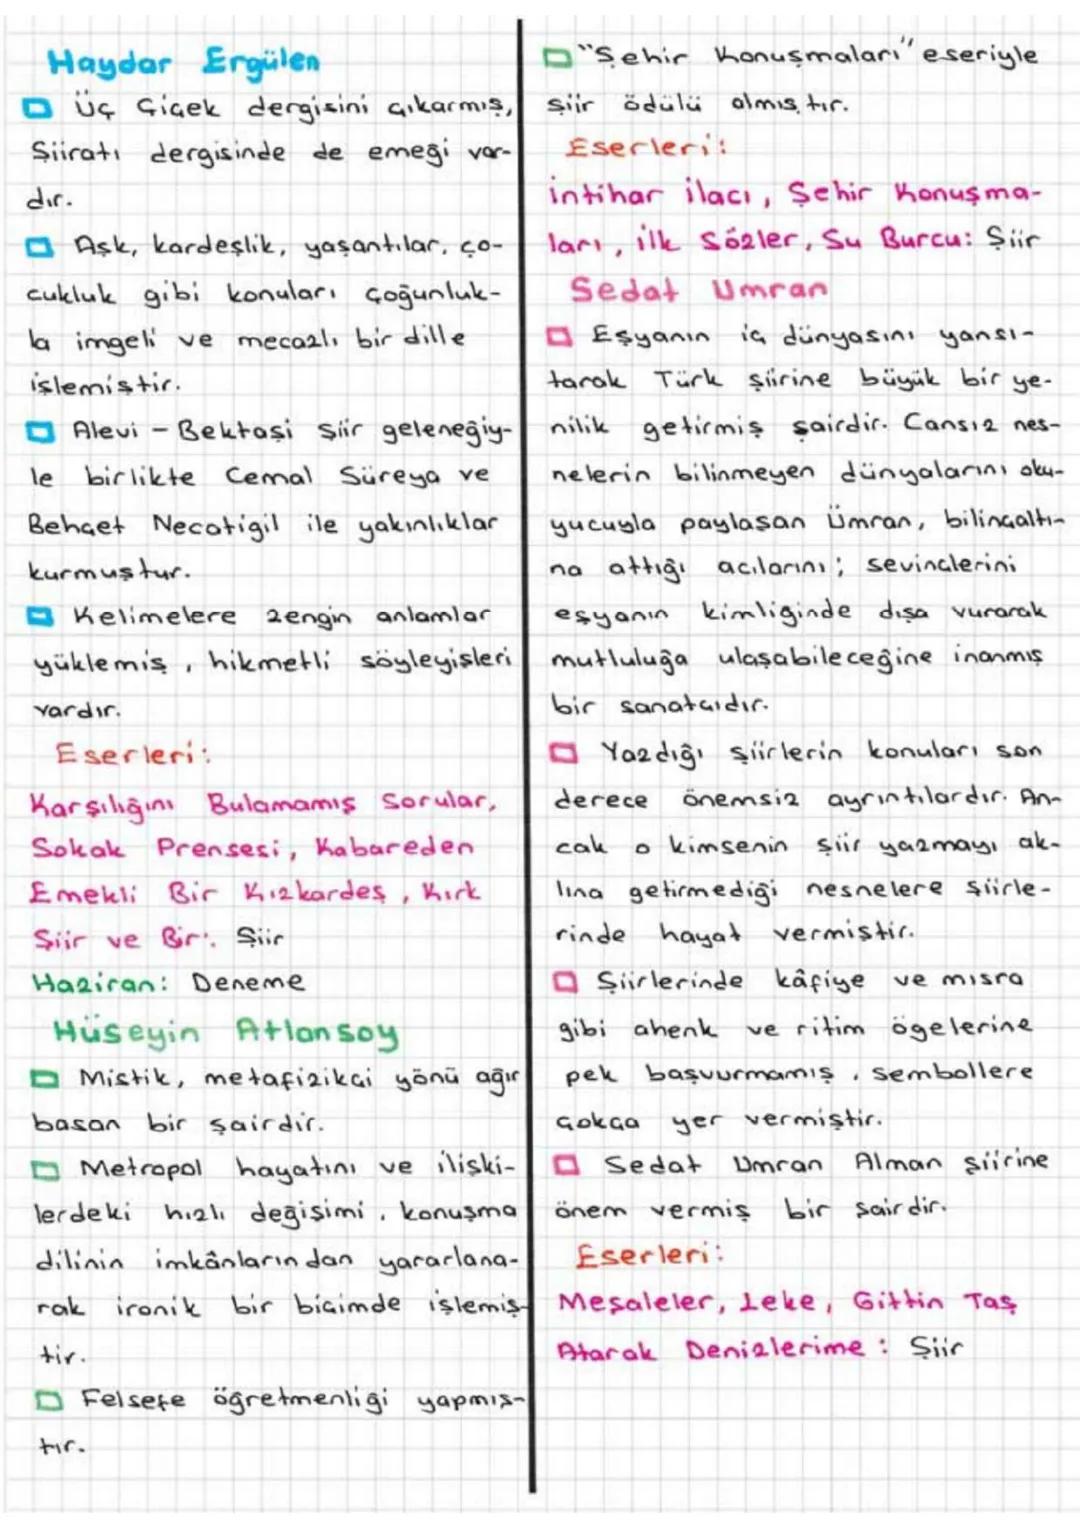 Haydar Ergülen
Üç Çiçek dergisini çıkarmış,
Şiiratı dergisinde de emeği var-
dır.
Aşk, kardeşlik, yaşantılar, ço-
cukluk gibi konuları çoğunluk-
la imgeli ve mecazlı bir dille
işlemiştir.
Alevi - Bektaşi şiir geleneğiy-
le birlikte Cemal Süreya ve
Behçet Necatigil ile yakınlıklar
kurmuştur.
Kelimelere zengin anlamlar
yüklemiş, hikmetli söyleyişleri
vardır.
Eserleri:
Karşılığını Bulamamış Sorular,
Sokak Prensesi, Kabareden
Emekli Bir Kızkardeş, Kırk
Şiir ve Bir: Şiir
Haziran: Deneme
Hüseyin Atlansoy
Mistik, metafizikçi yönü ağır
basan bir şairdir.
Metropol hayatını ve ilişki-
lerdeki hızlı değişimi, konuşma
dilinin imkânlarından yararlana-
rak ironik bir biçimde işlemiş-
tir.
Felsefe öğretmenliği yapmış-
tır.
"Şehir Konuşmaları" eseriyle
şiir ödülü almıştır.
Eserleri:
İntihar İlacı, Şehir Konuşma-
ları, İlk Sözler, Su Burcu: Şiir
Sedat Umran
Eşyanın iç dünyasını yansı-
tarak Türk şiirine büyük bir ye-
nilik getirmiş şairdir. Cansız nes-
nelerin bilinmeyen dünyalarını oku-
yucuyla paylaşan Ümran, bilinçaltı-
na attığı acılarını; sevinçlerini
eşyanın kimliğinde dışa vurarak
mutluluğa ulaşabileceğine inanmış
bir sanatçıdır.
Yazdığı şiirlerin konuları son
derece önemsiz ayrıntılardır. An-
cak o kimsenin şiir yazmayı ak-
lına getirmediği nesnelere şiirle-
rinde hayat vermiştir.
Şiirlerinde kâfiye ve mısra
gibi ahenk ve ritim ögelerine
pek başvurmamış, sembollere
çokça yer vermiştir.
Sedat Umran Alman şiirine
önem vermiş bir şairdir.
Eserleri:
Meşaleler, Leke, Gittin Taş
Atarak Denizlerime: Şiir